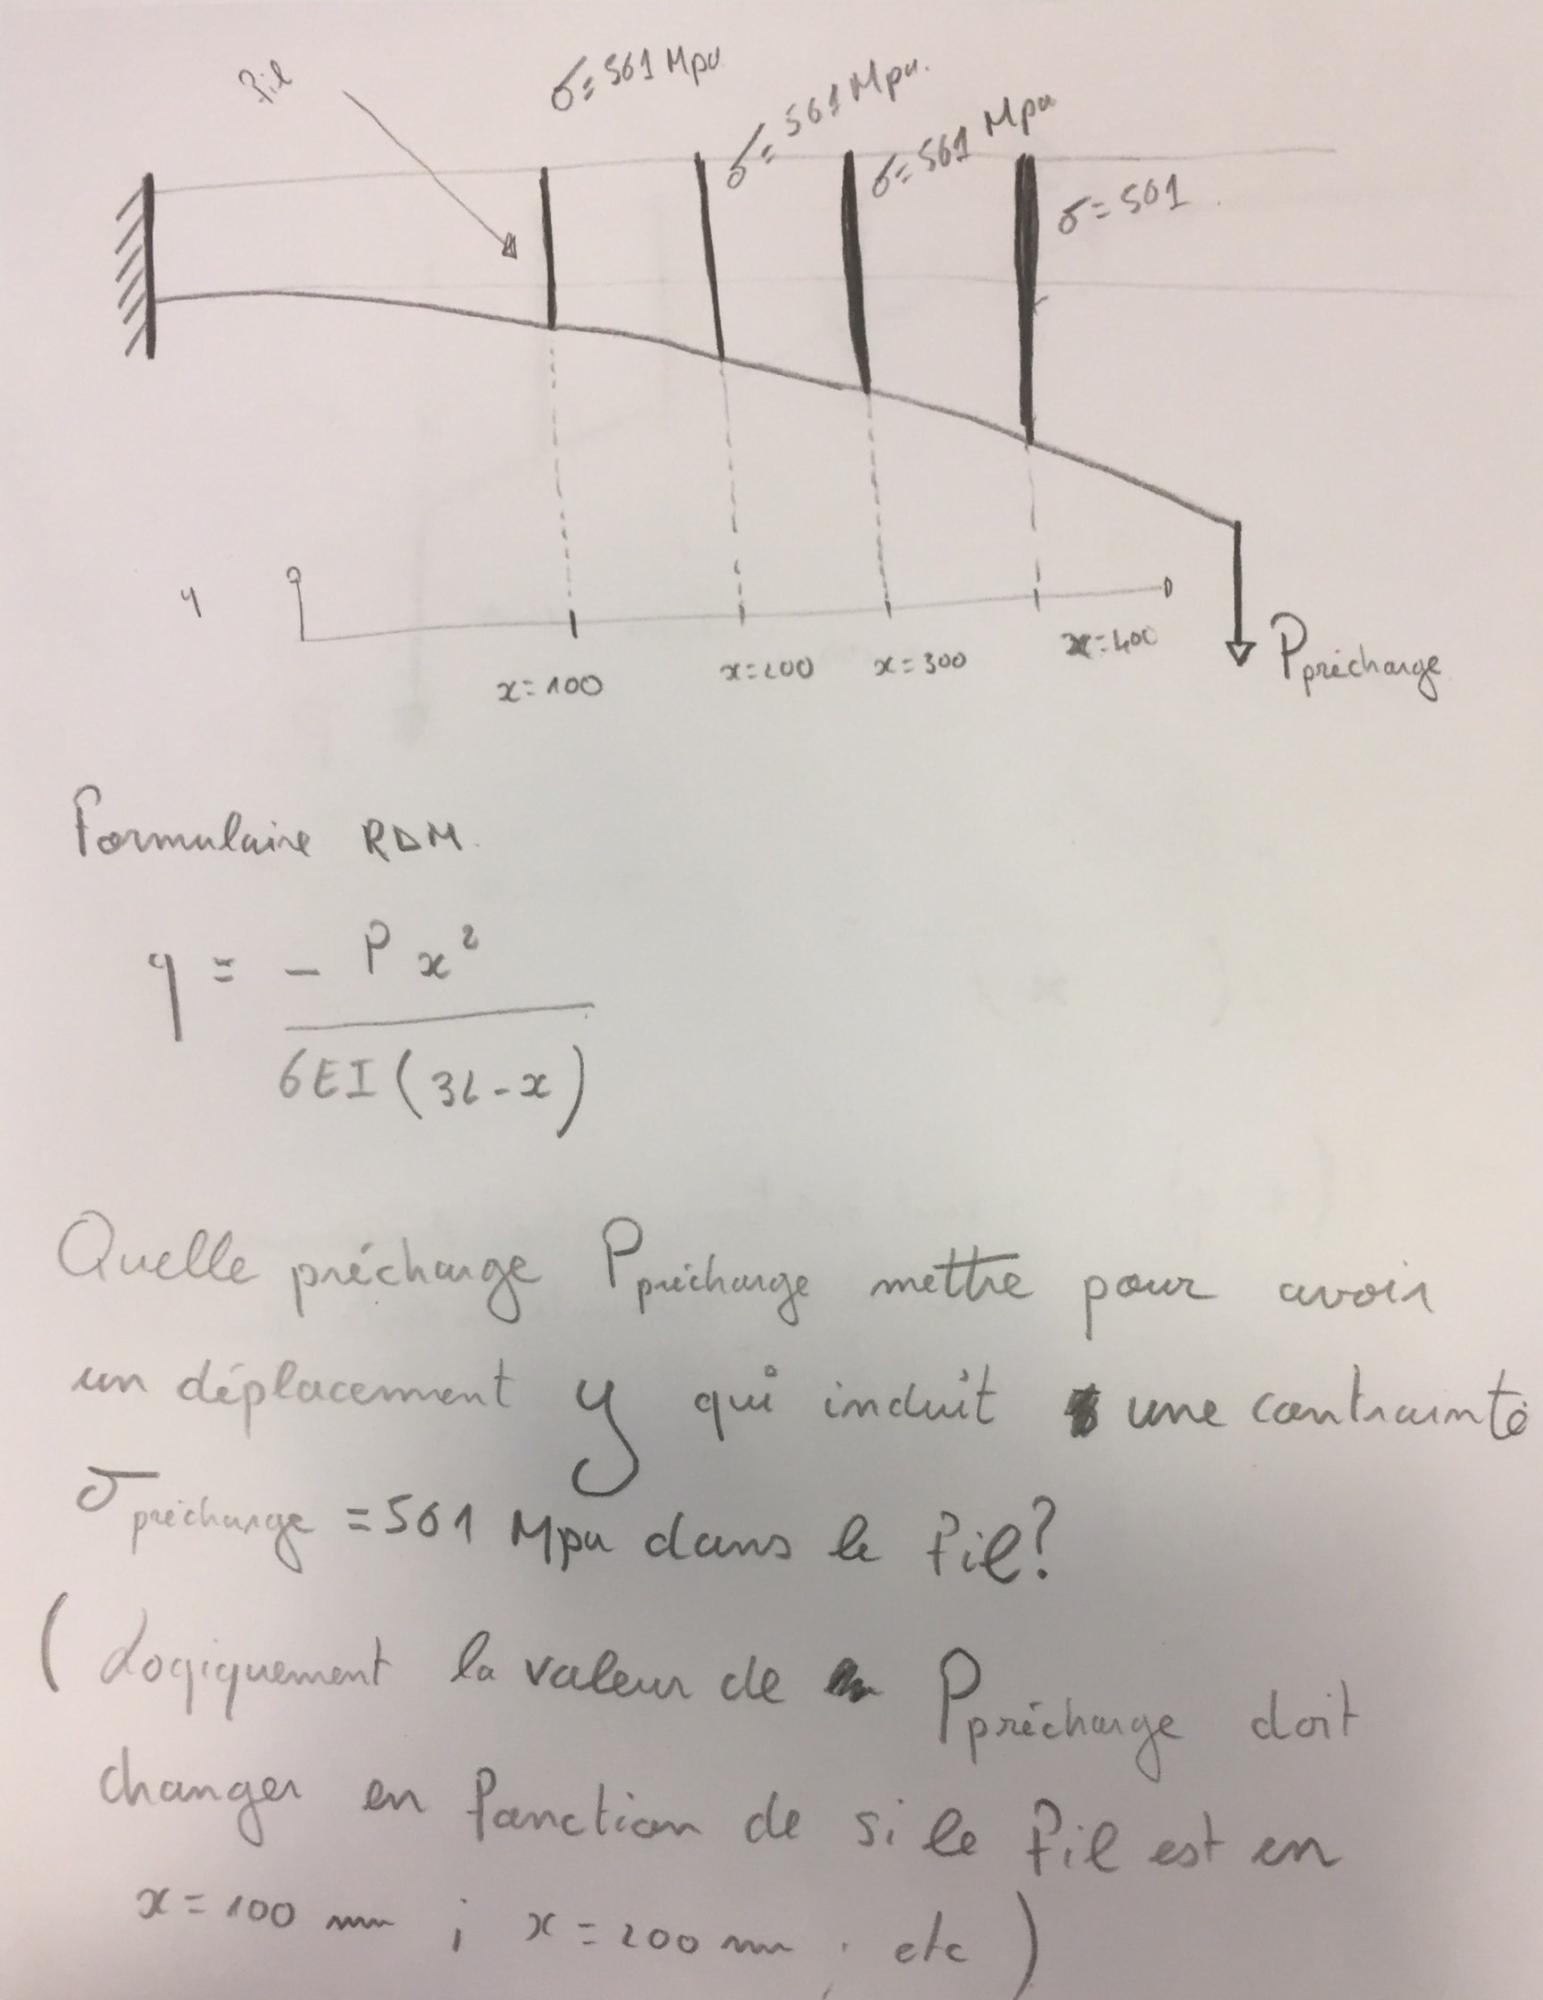 fil
σ=561 Mpa
σ=561 Mpa.
σ=561 Mpa
σ=561
y
x=100
x=200
x=300
x=400
Pprécharge
Formulaire RDM.
y = - P x²
6EI(3L-x)
Quelle précharge Pprécharge mettre pour avoir
un déplacement y qui induit une contrainte
σprécharge = 561 Mpa dans le fil?
(Logiquement la valeur de Pprécharge doit
changer en fonction de si le fil est en
x=100 mm ; x=200 mm ; etc)